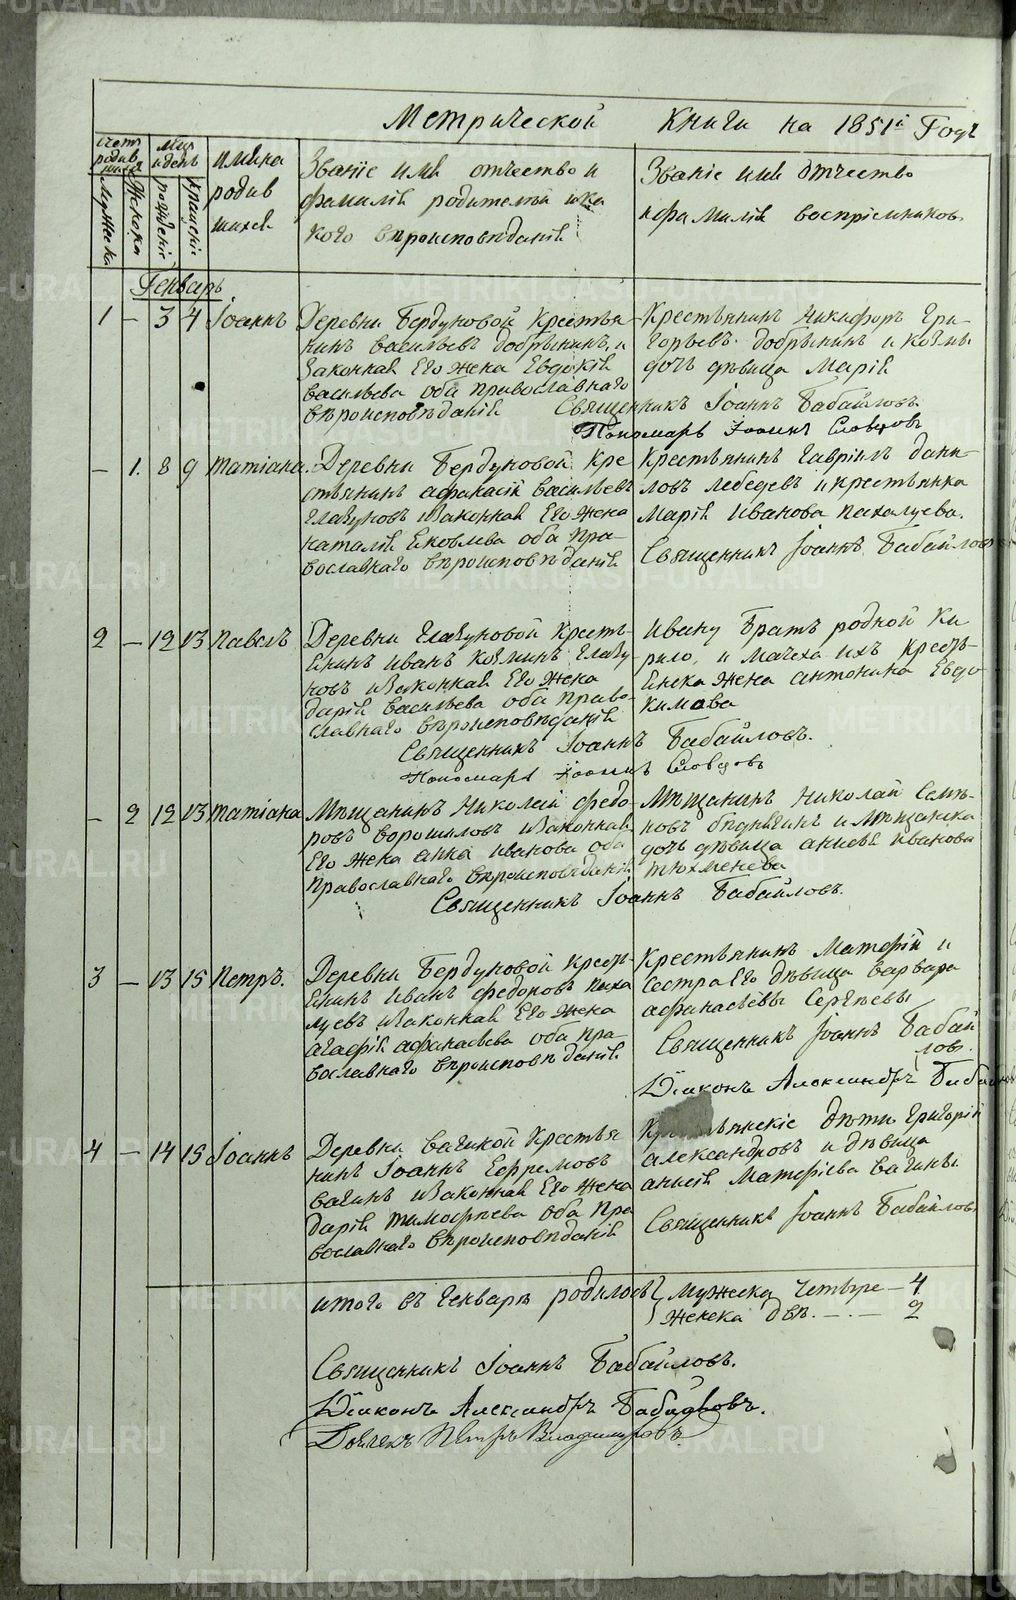 Метрической Книги на 1851й Годъ
счетъ родившихся
Мужеска
Женска
Мцъ и день
рожденiя
крещенiя
имена родив шихся
Званiе имя отчество и
фамилiя родителей и ка
кого вѣроисповѣданiя
Званiе имя отчество
и фамилiя воспрiемниковъ
Генварь
1 – 3 4 Iоаннъ
Деревни Бердуковой Крестья-
нинъ василiевъ добрынинъ, и
Законная Его жена Евдокiя
васильева оба православнаго
вѣроисповѣданiя
Крестьянинъ Никифоръ Гри-
горьевъ добрынинъ и козмы
дочь дѣвица Марiя
Священникъ Iоаннъ Бабайловъ
Пономарь Iоаннъ Словцовъ
– 1. 8 9 татiана.
Деревни Бердуковой Кре
стьянинъ афанасiй васильевъ
Глазуновъ и Законная Его жена
наталiя Яковлева оба Пра-
вославнаго вѣроисповѣданiя
Крестьянинъ гаврiилъ дани-
ловъ лебедевъ и крестьянка
Марiя Иванова пахалуева.
Священникъ Iоаннъ Бабайловъ
2 – 12 13 Павелъ
Деревни Глазуновой Кресть-
янинъ Иванъ Козминъ Глазу-
новъ и Законная Его жена
дарiя васильева оба Право-
славнаго вѣроисповѣданiя
Ивану Братъ родной Ки
рило, и мачеха ихъ Кресть-
янска жена антонина Евдо
кимова
Священникъ Iоаннъ Бабайловъ.
Пономарь Iоаннъ Словцовъ
– 2 12 13 татiана
Мѣщанинъ Николай федо-
ровъ ворошиловъ и Законная
Его жена анна иванова оба
Православнаго вѣроисповѣданiя
Мѣщанинъ Николай Семе-
новъ и Мѣщанска
дочь дѣвица анисья иванова
тюхменева
Священникъ Iоаннъ Бабайловъ.
3 – 13 15 Петръ.
Деревни Бердуковой Кресть-
янинъ Иванъ федоровъ паха
луевъ и Законная Его жена
агафiя афанасьева оба пра-
вославнаго вѣроисповѣданiя
Крестьянинъ Матфiй и
сестра Его дѣвица варвара
афанасьевы Сергѣевы
Священникъ Iоаннъ Бабай
ловъ.
Дiаконъ Александръ Бабайловъ
4 – 14 15 Iоаннъ
Деревни вагиной Крестья
нинъ Iоаннъ Ефремовъ
вагинъ и Законная Его жена
дарiя тимофѣева оба Пра
вославнаго вѣроисповѣданiя
Крестьянскiе дѣти Григорiй
александровъ и дѣвица
анисiя Матфiева вагины.
Священникъ Iоаннъ Бабайловъ.
итого въ Генварѣ родилось Мужеска четыре – 4
Женска двѣ. – . – 2
Священникъ Iоаннъ Бабайловъ.
Дiаконъ Александръ Бабайловъ.
Дьячекъ Петръ Владимировъ
METRIKI.GASO-URAL.RU